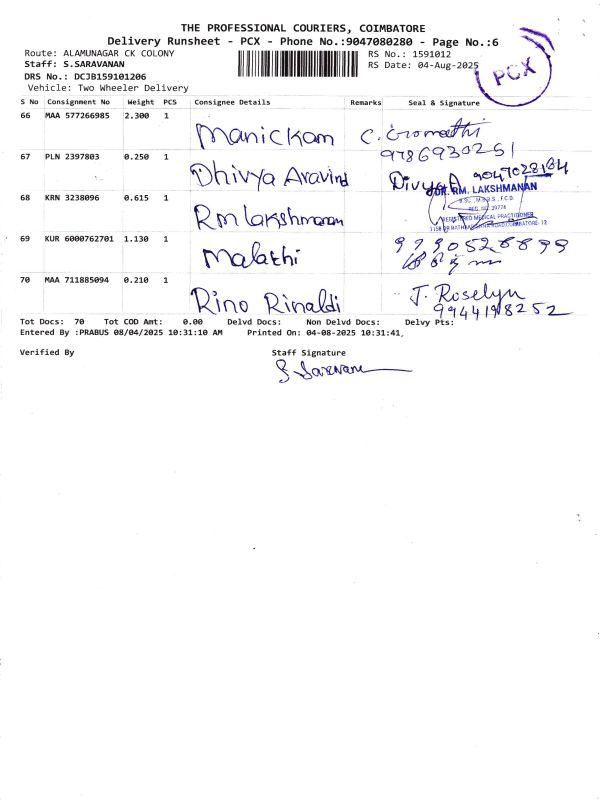 THE PROFESSIONAL COURIERS, COIMBATORE
Delivery Runsheet - PCX - Phone No.:9047080280 - Page No.:6
Route: ALAMUNAGAR CK COLONY RS No.: 1591012
Staff: S.SARAVANAN RS Date: 04-Aug-2025
PCX
DRS No.: DCJB159101206
Vehicle: Two Wheeler Delivery
S No Consignment No Weight PCS Consignee Details Remarks Seal & Signature
66 MAA 577266985 2.300 1 Manickam
9786930251
67 PLN 2397803 0.250 1 Dhivya Aravind Divya A
DR. RM. LAKSHMANAN
REGISTERED MEDICAL PRACTITIONER
68 KRN 3238096 0.615 1 Rm lakshmanan
69 KUR 6000762701 1.130 1 Malathi
70 MAA 711885094 0.210 1 Rino Rinaldi J. Roselyn
9944198252
Tot Docs: 70 Tot COD Amt: 0.00 Delvd Docs: Non Delvd Docs: Delvy Pts:
Entered By :PRABUS 08/04/2025 10:31:10 AM Printed On: 04-08-2025 10:31:41,
Verified By Staff Signature
S. Saravana